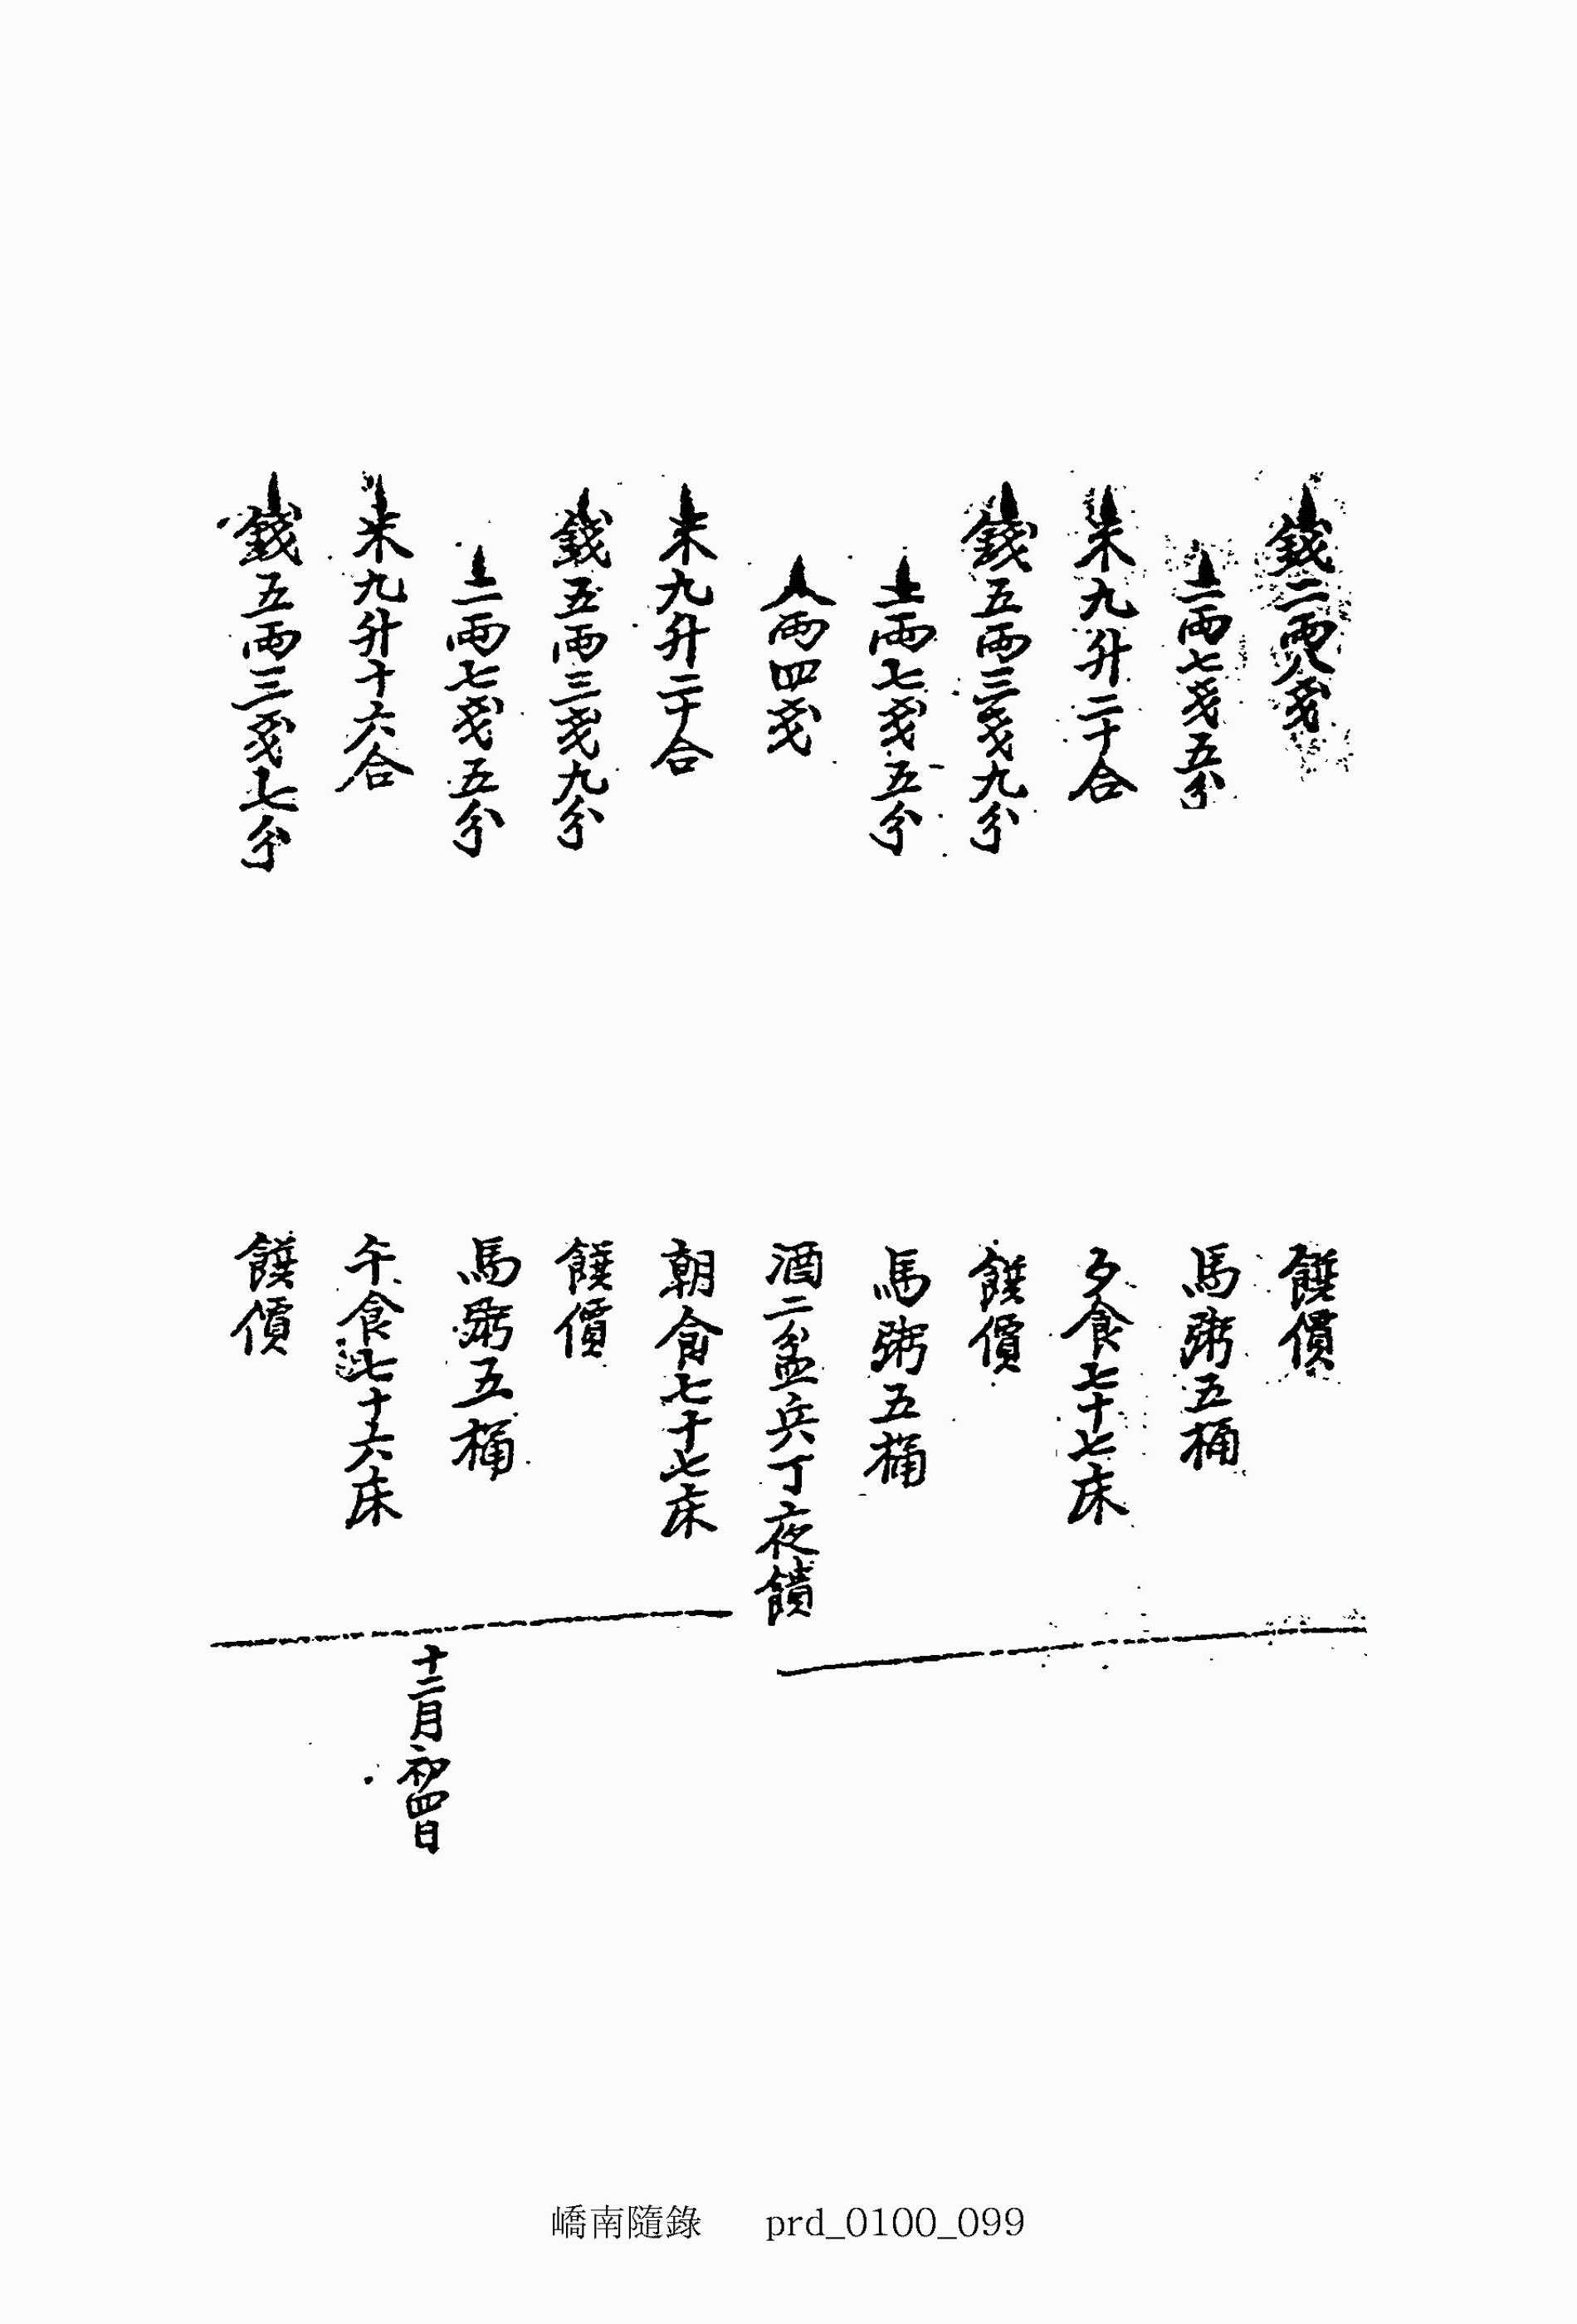 錢二兩八戔 饌價
二兩七戔五分 馬粥五桶
米九升二十合 夕食七十七床
錢五兩三戔九分 饌價
二兩七戔五分 馬粥五桶
八兩四戔 酒二盆兵丁夜饋
米九升二十合 朝食七十七床
錢五兩三戔九分 饌價
二兩七戔五分 馬粥五桶
米九升十六合 午食七十六床
錢五兩三戔七分 饌價
十二月初四日
嶠南隨錄 prd_0100_099